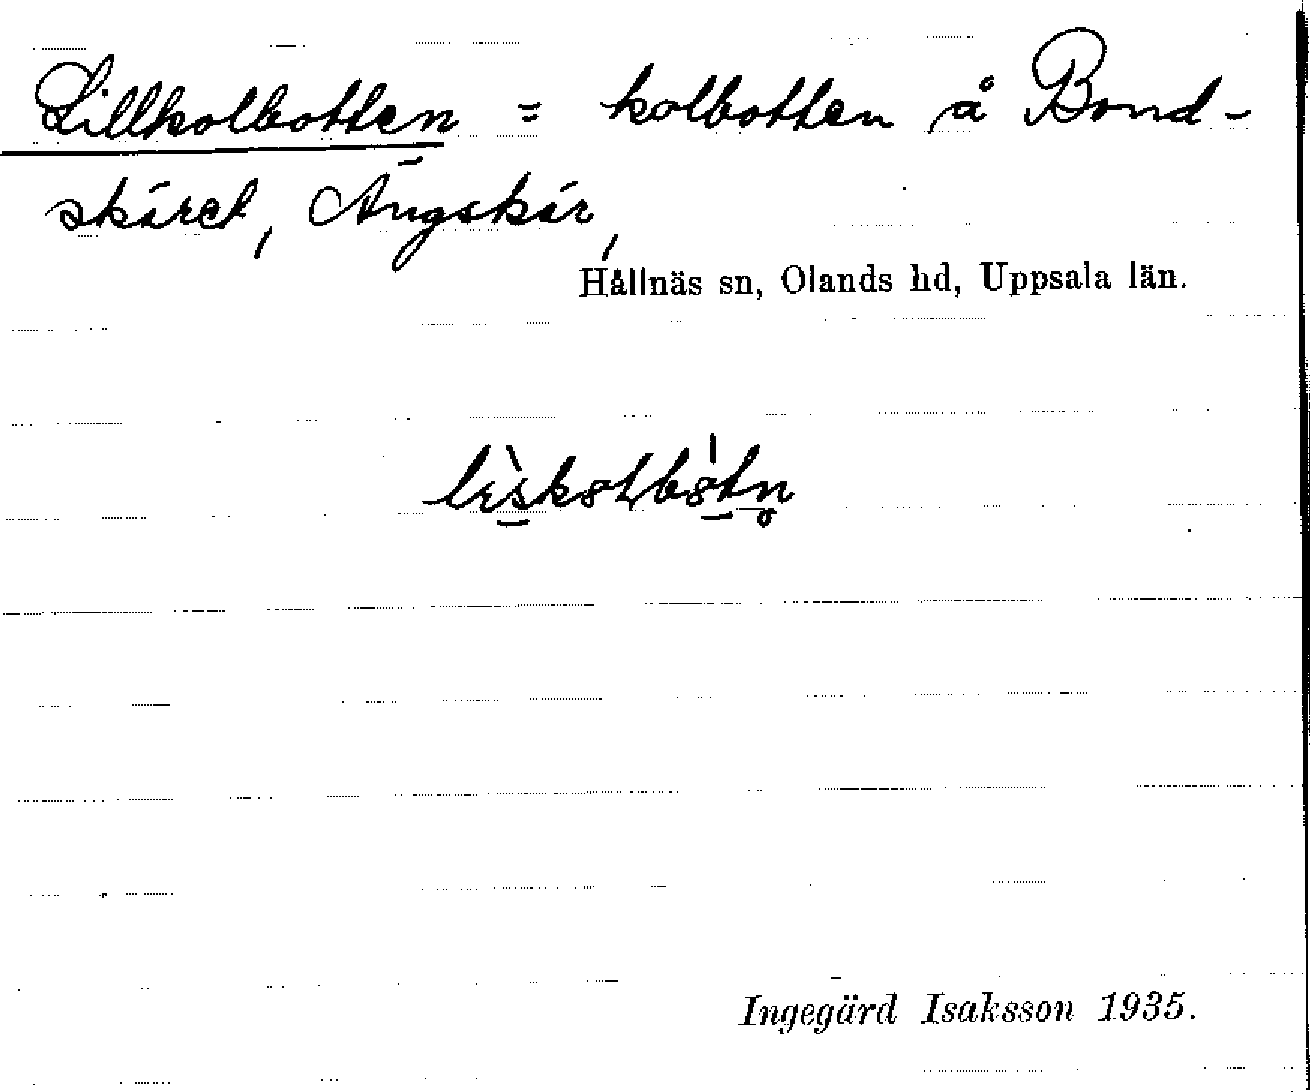 Lillkolbotten = kolbotten å Bond-
skäret, Ängskär,
Hållnäs sn, Olands hd, Uppsala län.
Ingegärd Isaksson 1935.